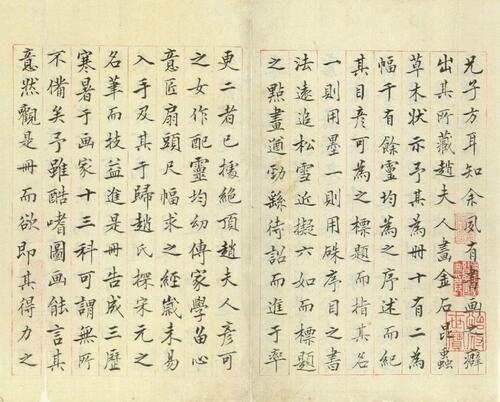 兄子方耳知余夙有書畫之癖
出其所藏趙夫人畫金石昆蟲
草木狀示予其為冊十有二為
幅千有餘靈均為之序述而紀
其目彦可為之標題而指其名
一則用墨一則用硃序目之書
法遠追松雪近擬六如而標題
之點畫遒勁繇待詔而進于率
更二者已據絶頂趙夫人彦可
之女作配靈均幼傳家學留心
意匠扇頭尺幅求之經嵗未易
入手及其于歸趙氏探宋元之
名筆而技益進是冊告成三歷
寒暑于画家十三科可謂無所
不備矣予雖酷嗜圖画能言其
意然觀是冊而欲即其得力之